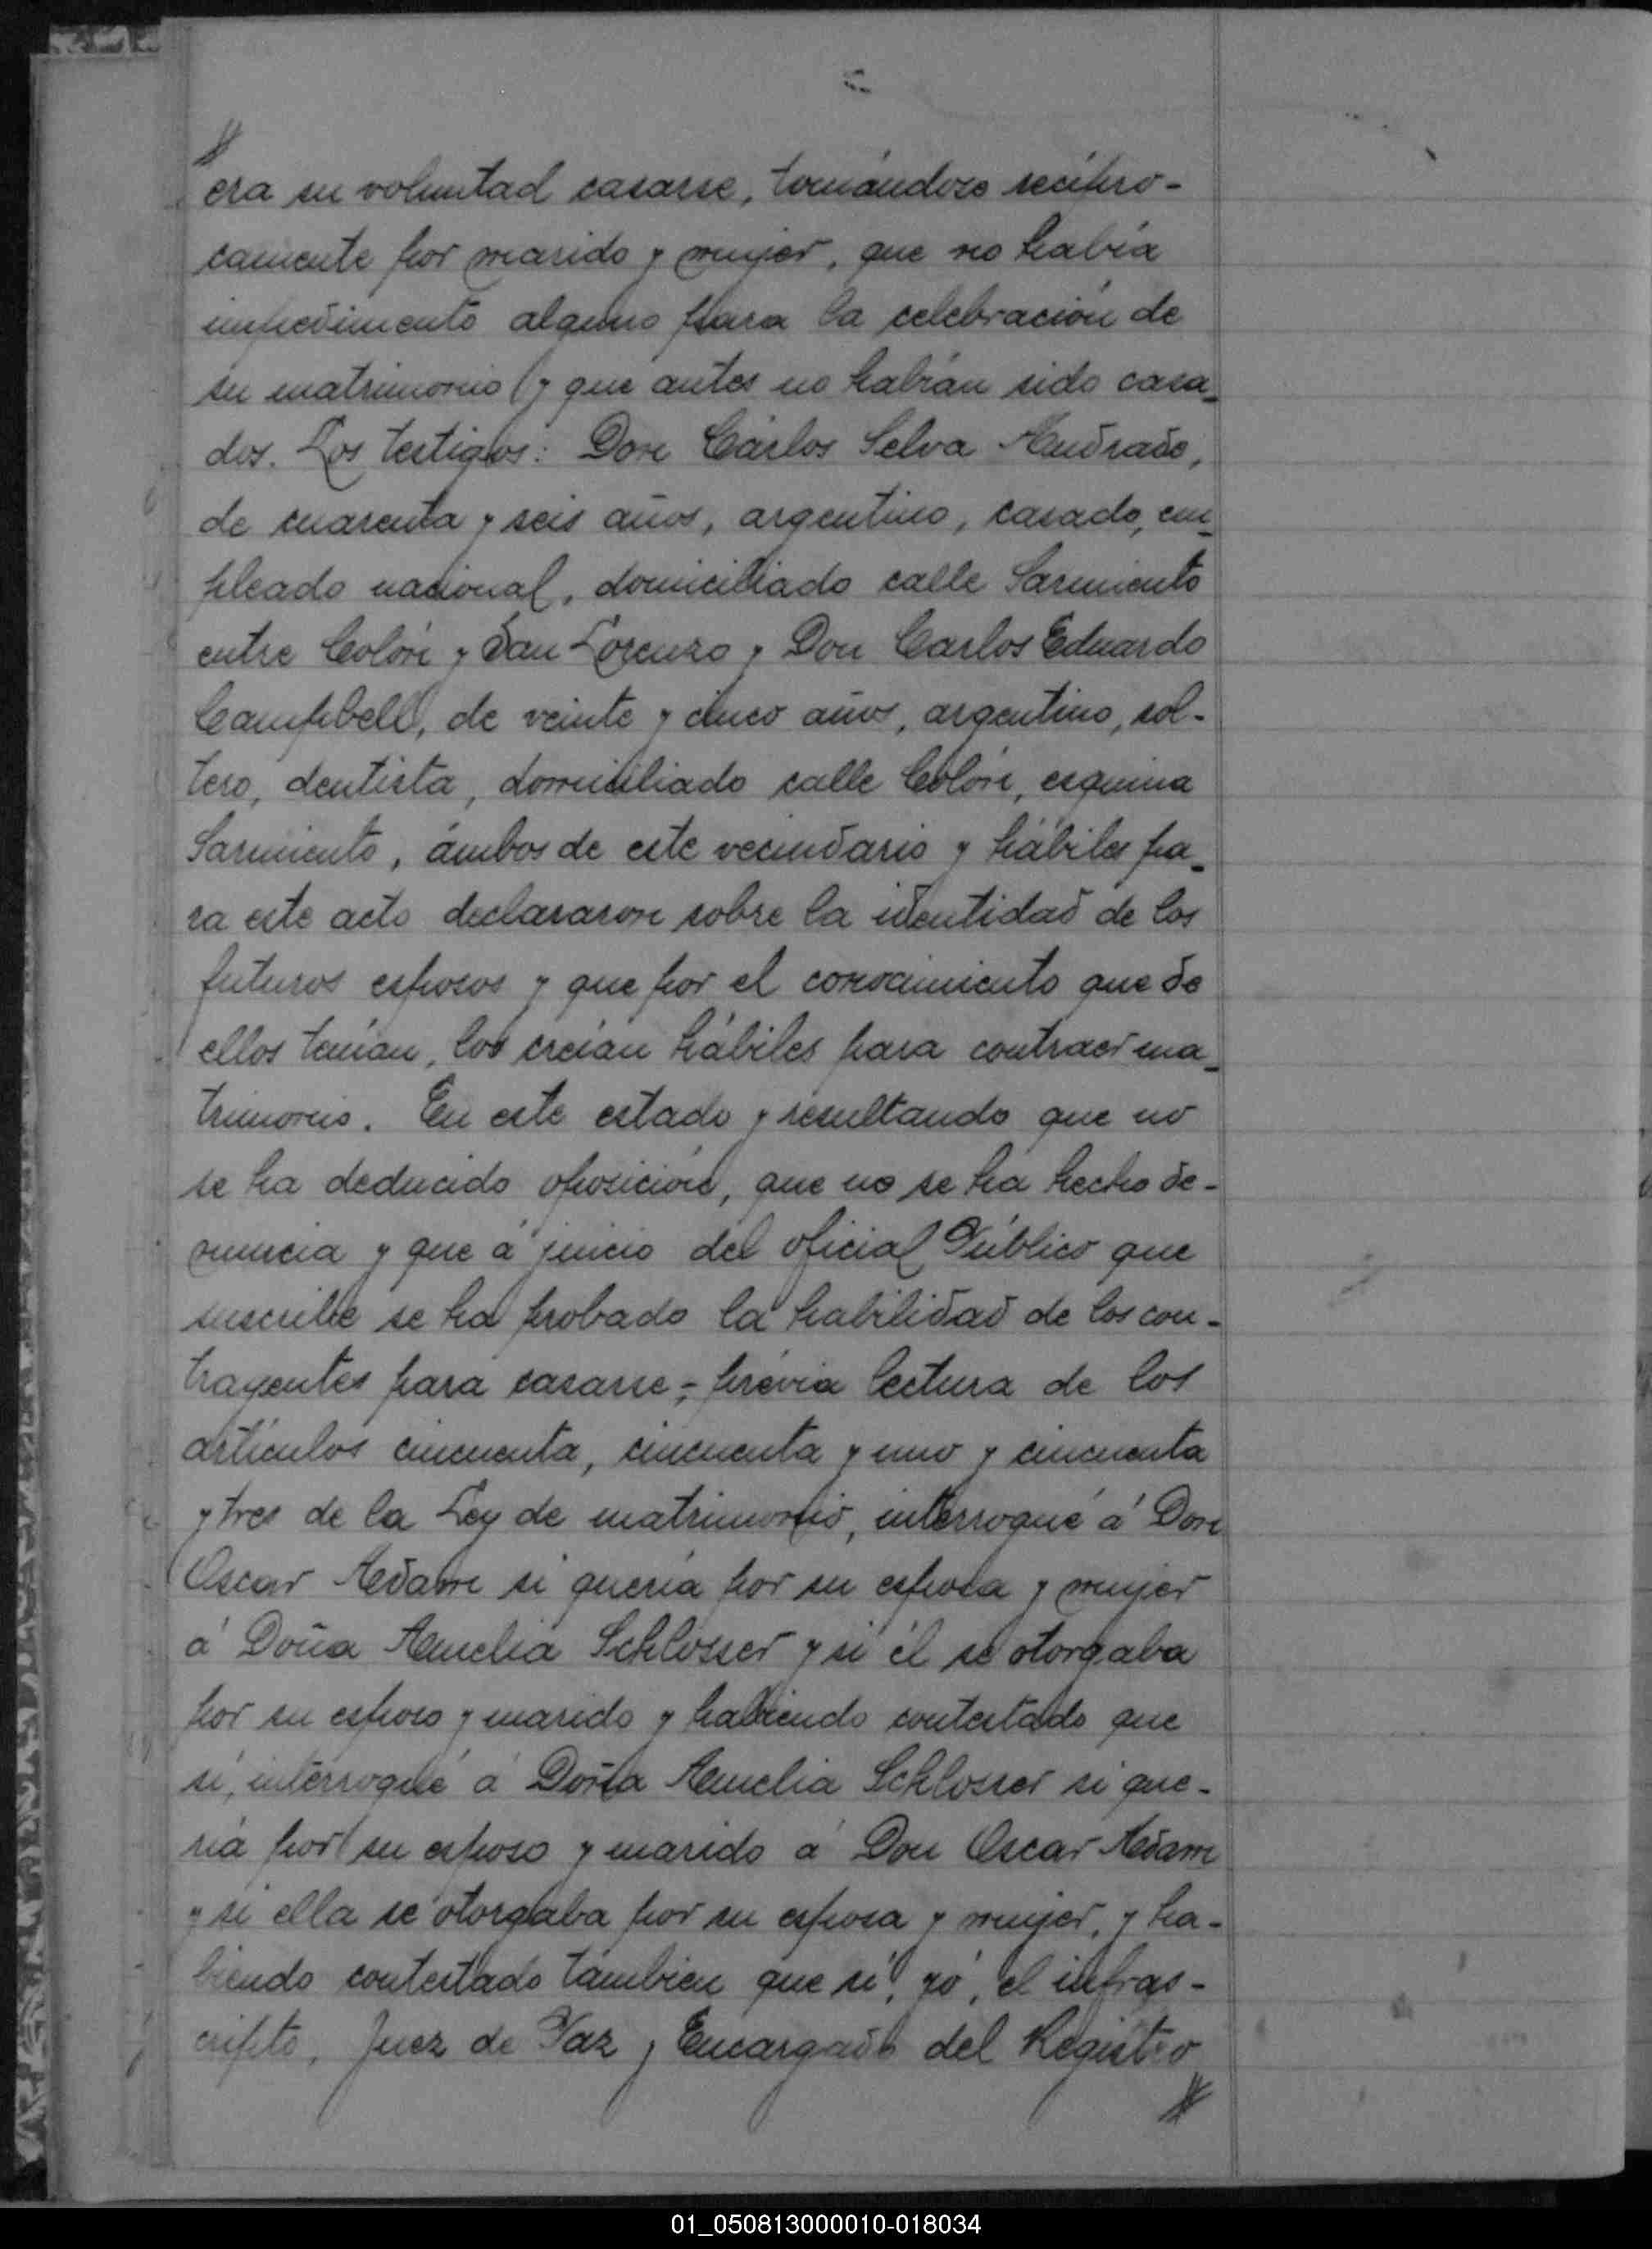 era su voluntad casarse, tomándose recípro-
camente por marido y mujer, que no había
impedimento alguno para la celebración de
su matrimonio y que antes no habían sido casa_
dos. Los testigos: Don Cárlos Selva Andrade,
de cuarenta y seis años, argentino, casado, em_
pleado nacional, domiciliado calle Sarmiento
entre Colón y San Lorenzo y Don Carlos Eduardo
Campbell, de veinte y cinco años, argentino, sol-
tero, dentista, domiciliado calle Colón, esquina
Sarmiento, ámbos de este vecindario y hábiles pa_
ra este acto declararon sobre la identidad de los
futuros esposos y que por el conocimiento que de
ellos tenían, los creían hábiles para contraer ma_
trimonio. En este estado y resultando que no
se ha deducido oposición, que no se ha hecho de-
nuncia y que á juicio del oficial Público que
suscribe se ha probado la habilidad de los con-
trayentes para casarse; prévia lectura de los
artículos cincuenta, cincuenta y uno y cincuenta
y tres de la Ley de matrimonio, interrogué á Don
Oscar Adam si quería por su esposa y mujer
á Doña Amelia Schlosser y si él se otorgaba
por su esposo y marido y habiendo contestado que
sí, interrogué á Doña Amelia Schlosser si que-
ría por su esposo y marido á Don Oscar Adam
y si ella se otorgaba por su esposa y mujer, y ha-
biendo contestado tambien que sí, yó, el infras-
cripto, Juez de Paz y Encargado del Registro
01_050813000010-018034